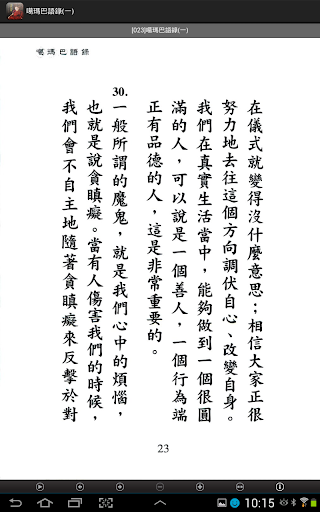 噶瑪巴語錄(一)
[023]噶瑪巴語錄(一)
噶瑪巴語錄
在儀式就變得沒什麼意思；相信大家正很
努力地去往這個方向調伏自心、改變自身。
我們在真實生活當中，能夠做到一個很圓
滿的人，可以說是一個善人，一個行為端
正有品德的人，這是非常重要的。
30.
一般所謂的魔鬼，就是我們心中的煩惱，
也就是說貪瞋癡。當有人傷害我們的時候，
我們會不自主地隨著貪瞋癡來反擊於對
23
10:15